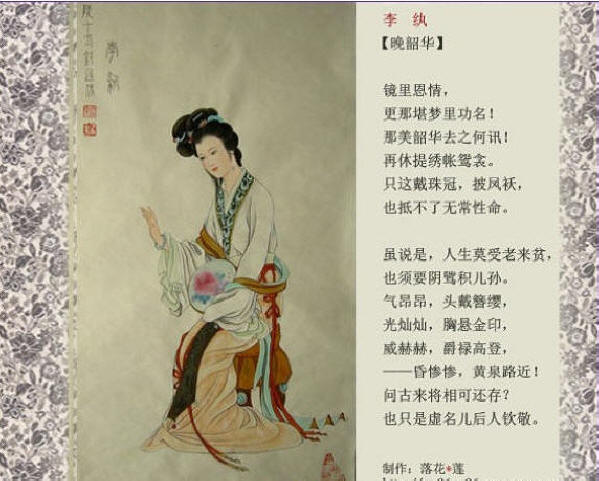 李 纨
【晚韶华】
镜里恩情，
更那堪梦里功名！
那美韶华去之何讯！
再休提绣帐鸳衾。
只这戴珠冠，披凤袄，
也抵不了无常性命。
虽说是，人生莫受老来贫，
也须要阴骘积儿孙。
气昂昂，头戴簪缨，
光灿灿，胸悬金印，
威赫赫，爵禄高登，
——昏惨惨，黄泉路近！
问古来将相可还存？
也只是虚名儿后人钦敬。
制作：落花*莲
李纨